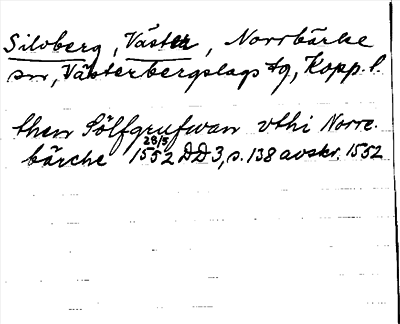 Silvberg, Väster, Norrbärke
sn, Västerbergslags tg, Kopp. l.
then Sölfgrufwan vthi Norre
bärche 28/5 1552 DD3, s. 138 avskr. 1552